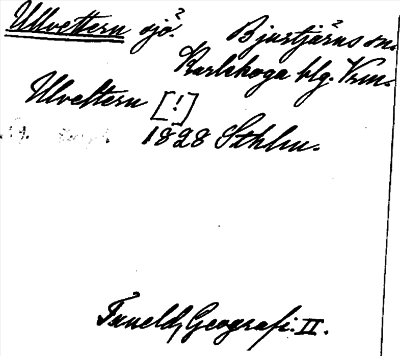 Ullvettern sjö? Bjurtjärns sn.
Karlskoga blg. Vrm.
Ulvettern [!]
1828 Sthlm.
Tuneld, Geografi. II.